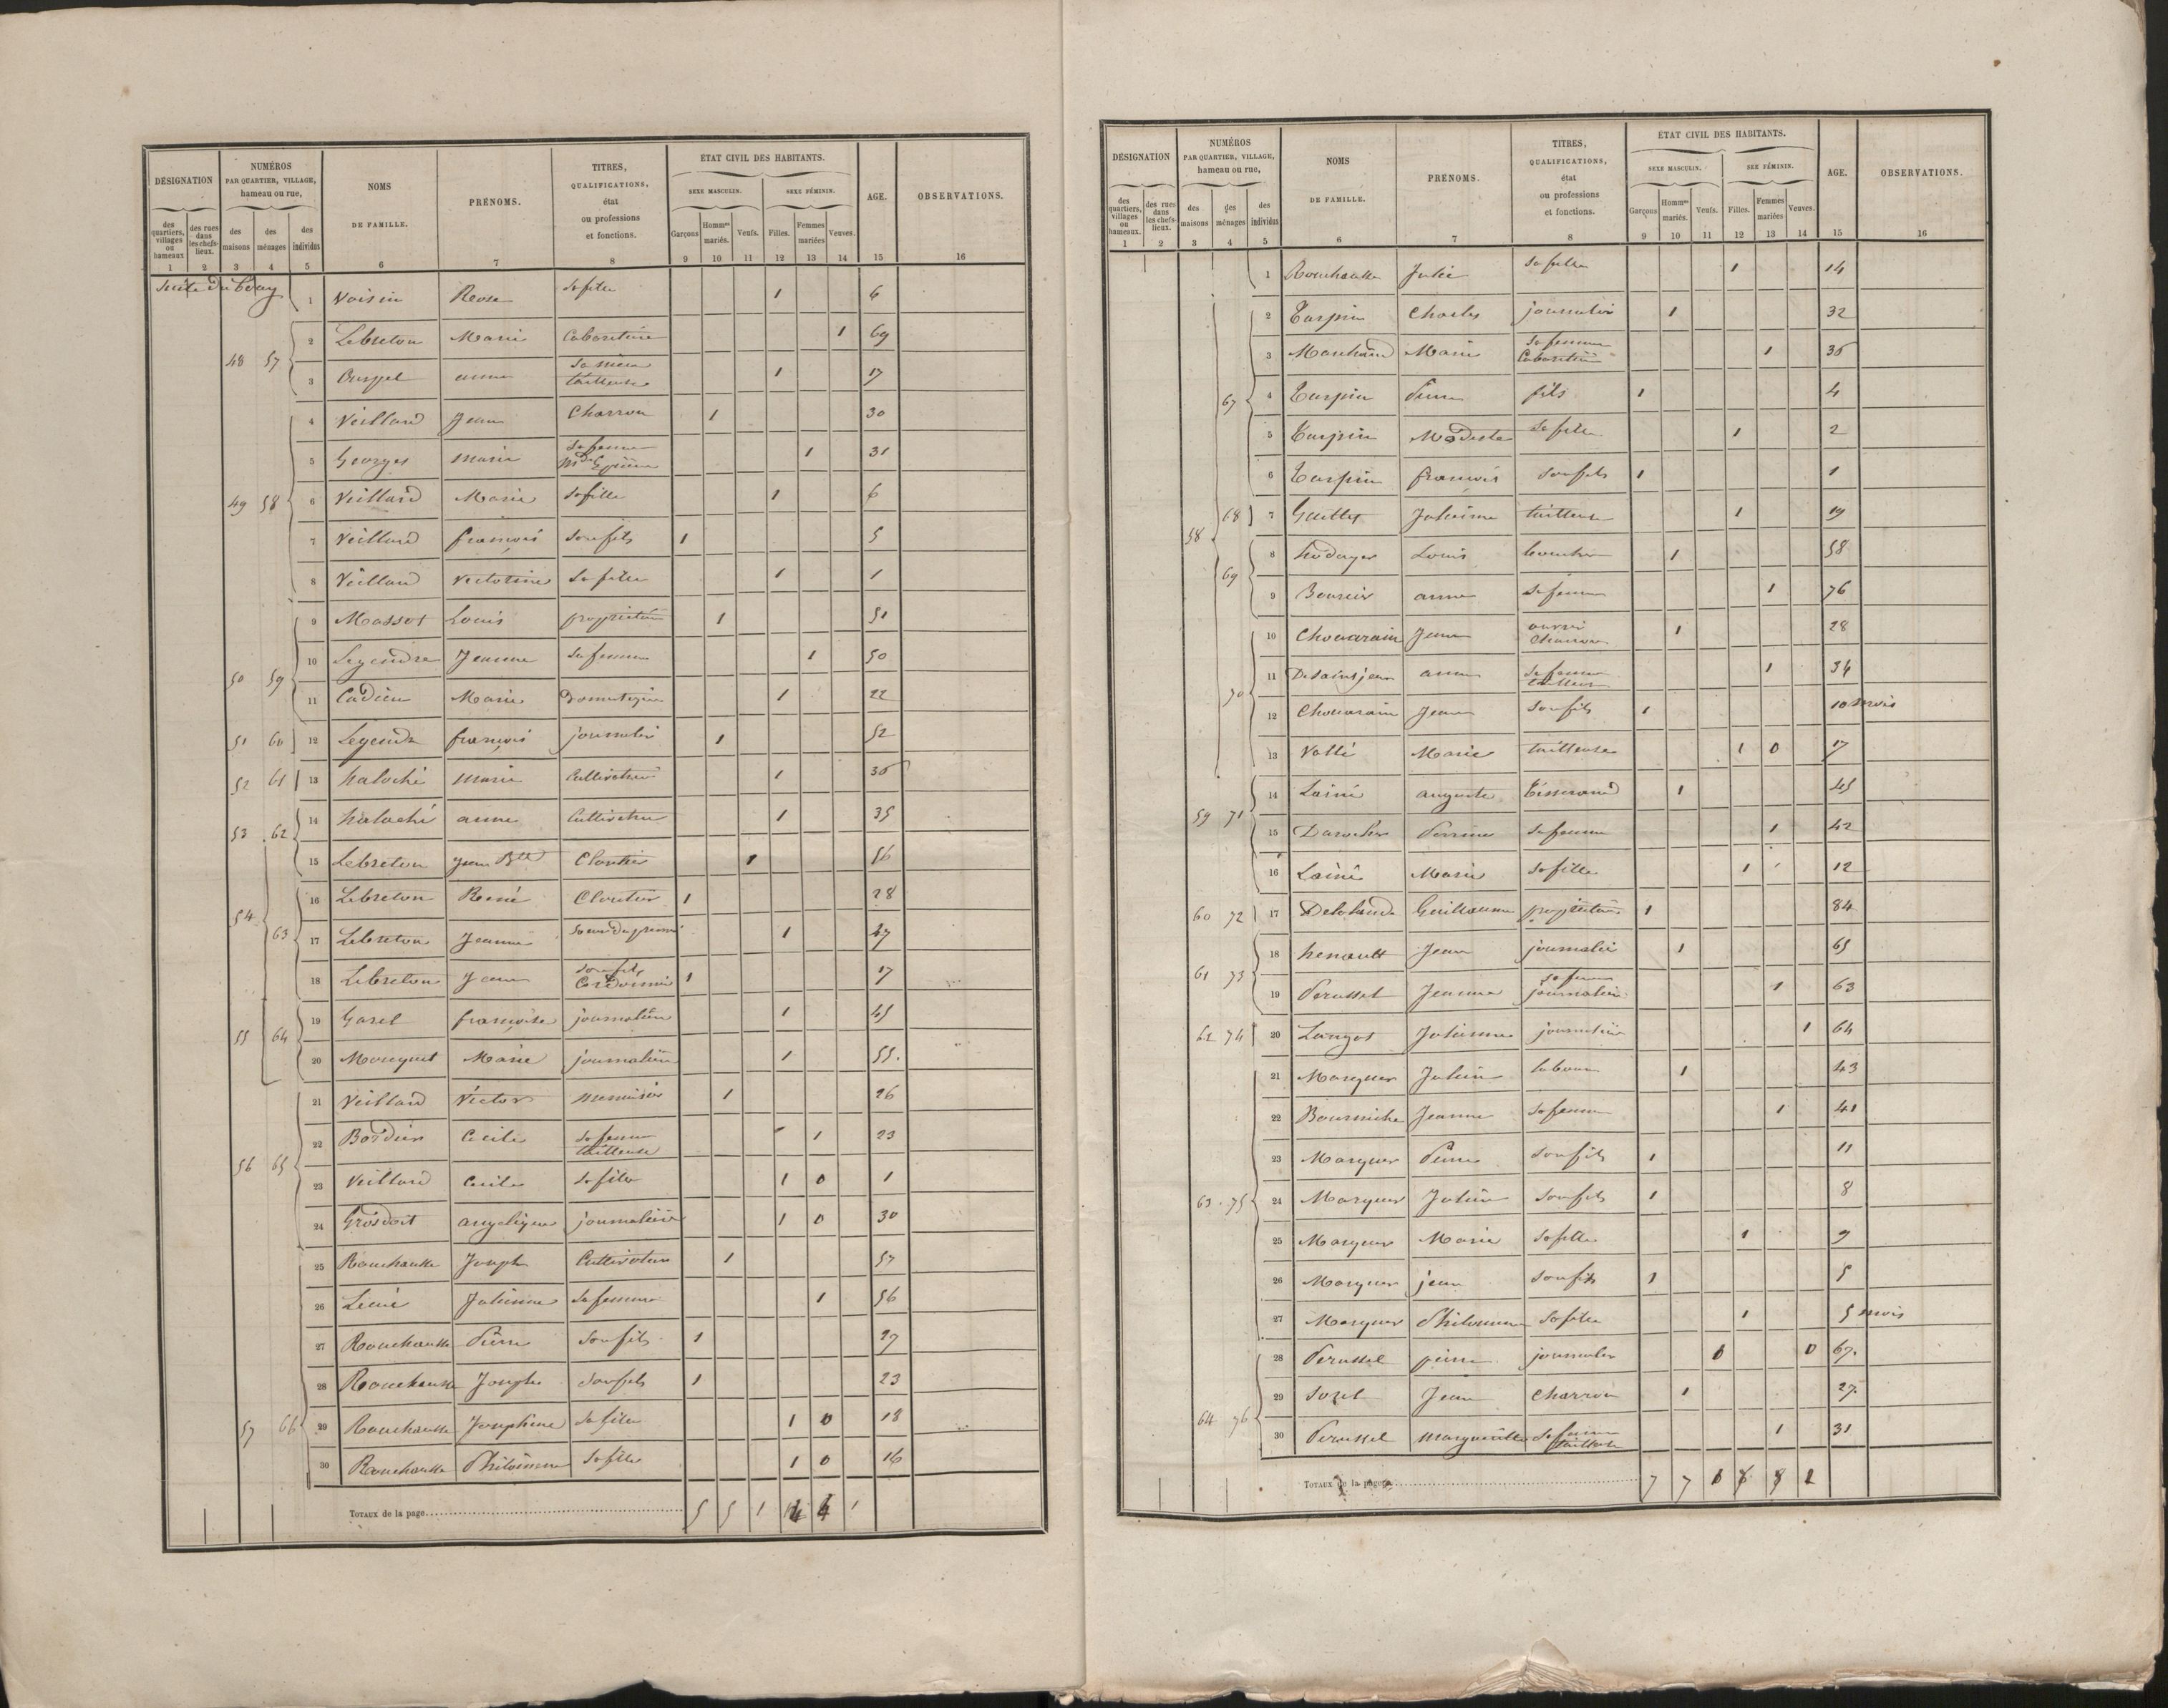 DÉSIGNATION
NUMÉROS
PAR QUARTIER, VILLAGE,
hameau ou rue,
NOMS
DE FAMILLE.
PRÉNOMS.
TITRES,
QUALIFICATIONS,
état
ou professions
et fonctions.
ÉTAT CIVIL DES HABITANTS.
SEXE MASCULIN. SEXE FÉMININ.
AGE.
OBSERVATIONS.
des quartiers, villages ou hameaux
des rues dans les chefs-lieux.
des maisons
des ménages
des individus
Garçons Hommes mariés. Veufs. Filles. Femmes mariées Veuves.
1 2 3 4 5 6 7 8 9 10 11 12 13 14 15 16
Suite du bourg
1 Voisin Rose Sa fille 1 6
48 57 2 Lebreton Marie Cabaretière 1 69
3 anne Sa nièce tailleuse 1 17
4 Veillard Jean Charron 1 30
5 Georges Marie Sa femme Mde Epicière 1 31
49 58 6 Veillard Marie Sa fille 1 6
7 Veillard françois Son fils 1 5
8 Veillard Victorine Sa fille 1 1
9 Massot Louis propriétaire 1 51
10 Legendre Jeanne Sa femme 1 50
50 59 11 Cadieu Marie Domestique 1 22
51 60 12 Legendre françois journalier 1 52
52 61 13 haloché Marie Cultivatrice 1 36
53 62 14 haloché anne Cultivatrice 1 35
15 Lebreton Jean Bte Cloutier 1 56
54 63 16 Lebreton René Cloutier 1 28
17 Lebreton Jeanne Soeur du premier 1 47
18 Lebreton Jean Son fils Cordonnier 1 17
55 64 19 Garel françoise journalière 1 45
20 Mouquet Marie journalière 1 55.
21 Veillard Victor menuisier 1 26
22 Bordier Cecile Sa femme tailleuse 1 23
56 65 23 Veillard Cecile Sa fille 1 0 1
24 Grosdoit angelique journalière 1 0 30
25 Rouchausse Joseph Cultivateur 1 57
26 Julienne Sa femme 1 56
27 Rouchausse Pierre Son fils 1 27
28 Rouchausse Joseph Son fils 1 23
57 66 29 Rouchausse Josephine Sa fille 1 0 18
30 Rouchausse Philomène Sa fille 1 0 16
TOTAUX de la page 5 5 1
DÉSIGNATION
NUMÉROS
PAR QUARTIER, VILLAGE,
hameau ou rue,
NOMS
DE FAMILLE.
PRÉNOMS.
TITRES,
QUALIFICATIONS,
état
ou professions
et fonctions.
ÉTAT CIVIL DES HABITANTS.
SEXE MASCULIN. SEX FÉMININ.
AGE.
OBSERVATIONS.
des quartiers, villages ou hameaux.
des rues dans les chefs-lieux.
des maisons
des ménages
des individus
Garçons Hommes mariés. Veufs. Filles. Femmes mariées Veuves.
1 2 3 4 5 6 7 8 9 10 11 12 13 14 15 16
1 Rouchausse Julie Sa fille 1 14
2 Turpin Charles journalier 1 32
3 Marie Sa femme Cabaretière 1 36
67 4 Turpin Pierre fils 1 4
5 Turpin Modeste Sa fille 1 2
6 Turpin françois Son fils 1 1
58 68 7 Julienne tailleuse 1 19
69 8 Louis 1 58
9 anne Sa femme 1 76
10 Chouarain Jean ouvrier Charron 1 28
70 11 Desaintjean anne Sa femme tailleuse 1 34
12 Chouarain Jean Son fils 1 10 mois
13 Vallé Marie tailleuse 1 0 17
59 71 14 Lainé auguste Tisserand 1 45
15 Perrine Sa femme 1 42
16 Lainé Marie Sa fille 1 12
60 72 17 Delalande Guillaume propriétaire 1 84
61 73 18 henault Jean journalier 1 65
19 Perussel Jeanne Sa femme journalière 1 63
62 74 20 Langot Julienne journalière 1 64
21 Marquer Julien 1 43
22 Bourniche Jeanne Sa femme 1 41
23 Marquer Pierre Son fils 1 11
63 75 24 Marquer Julien Son fils 1 8
25 Marquer Marie Sa fille 1 9
26 Marquer jean Son fils 1 5
27 Marquer Philomène Sa fille 1 5 mois
28 Perussel pierre journalier 0 67.
29 Sorel Jean Charron 1 27.
64 76 30 Perussel marguerite Sa femme tailleuse 1 31
TOTAUX de la page 7 7